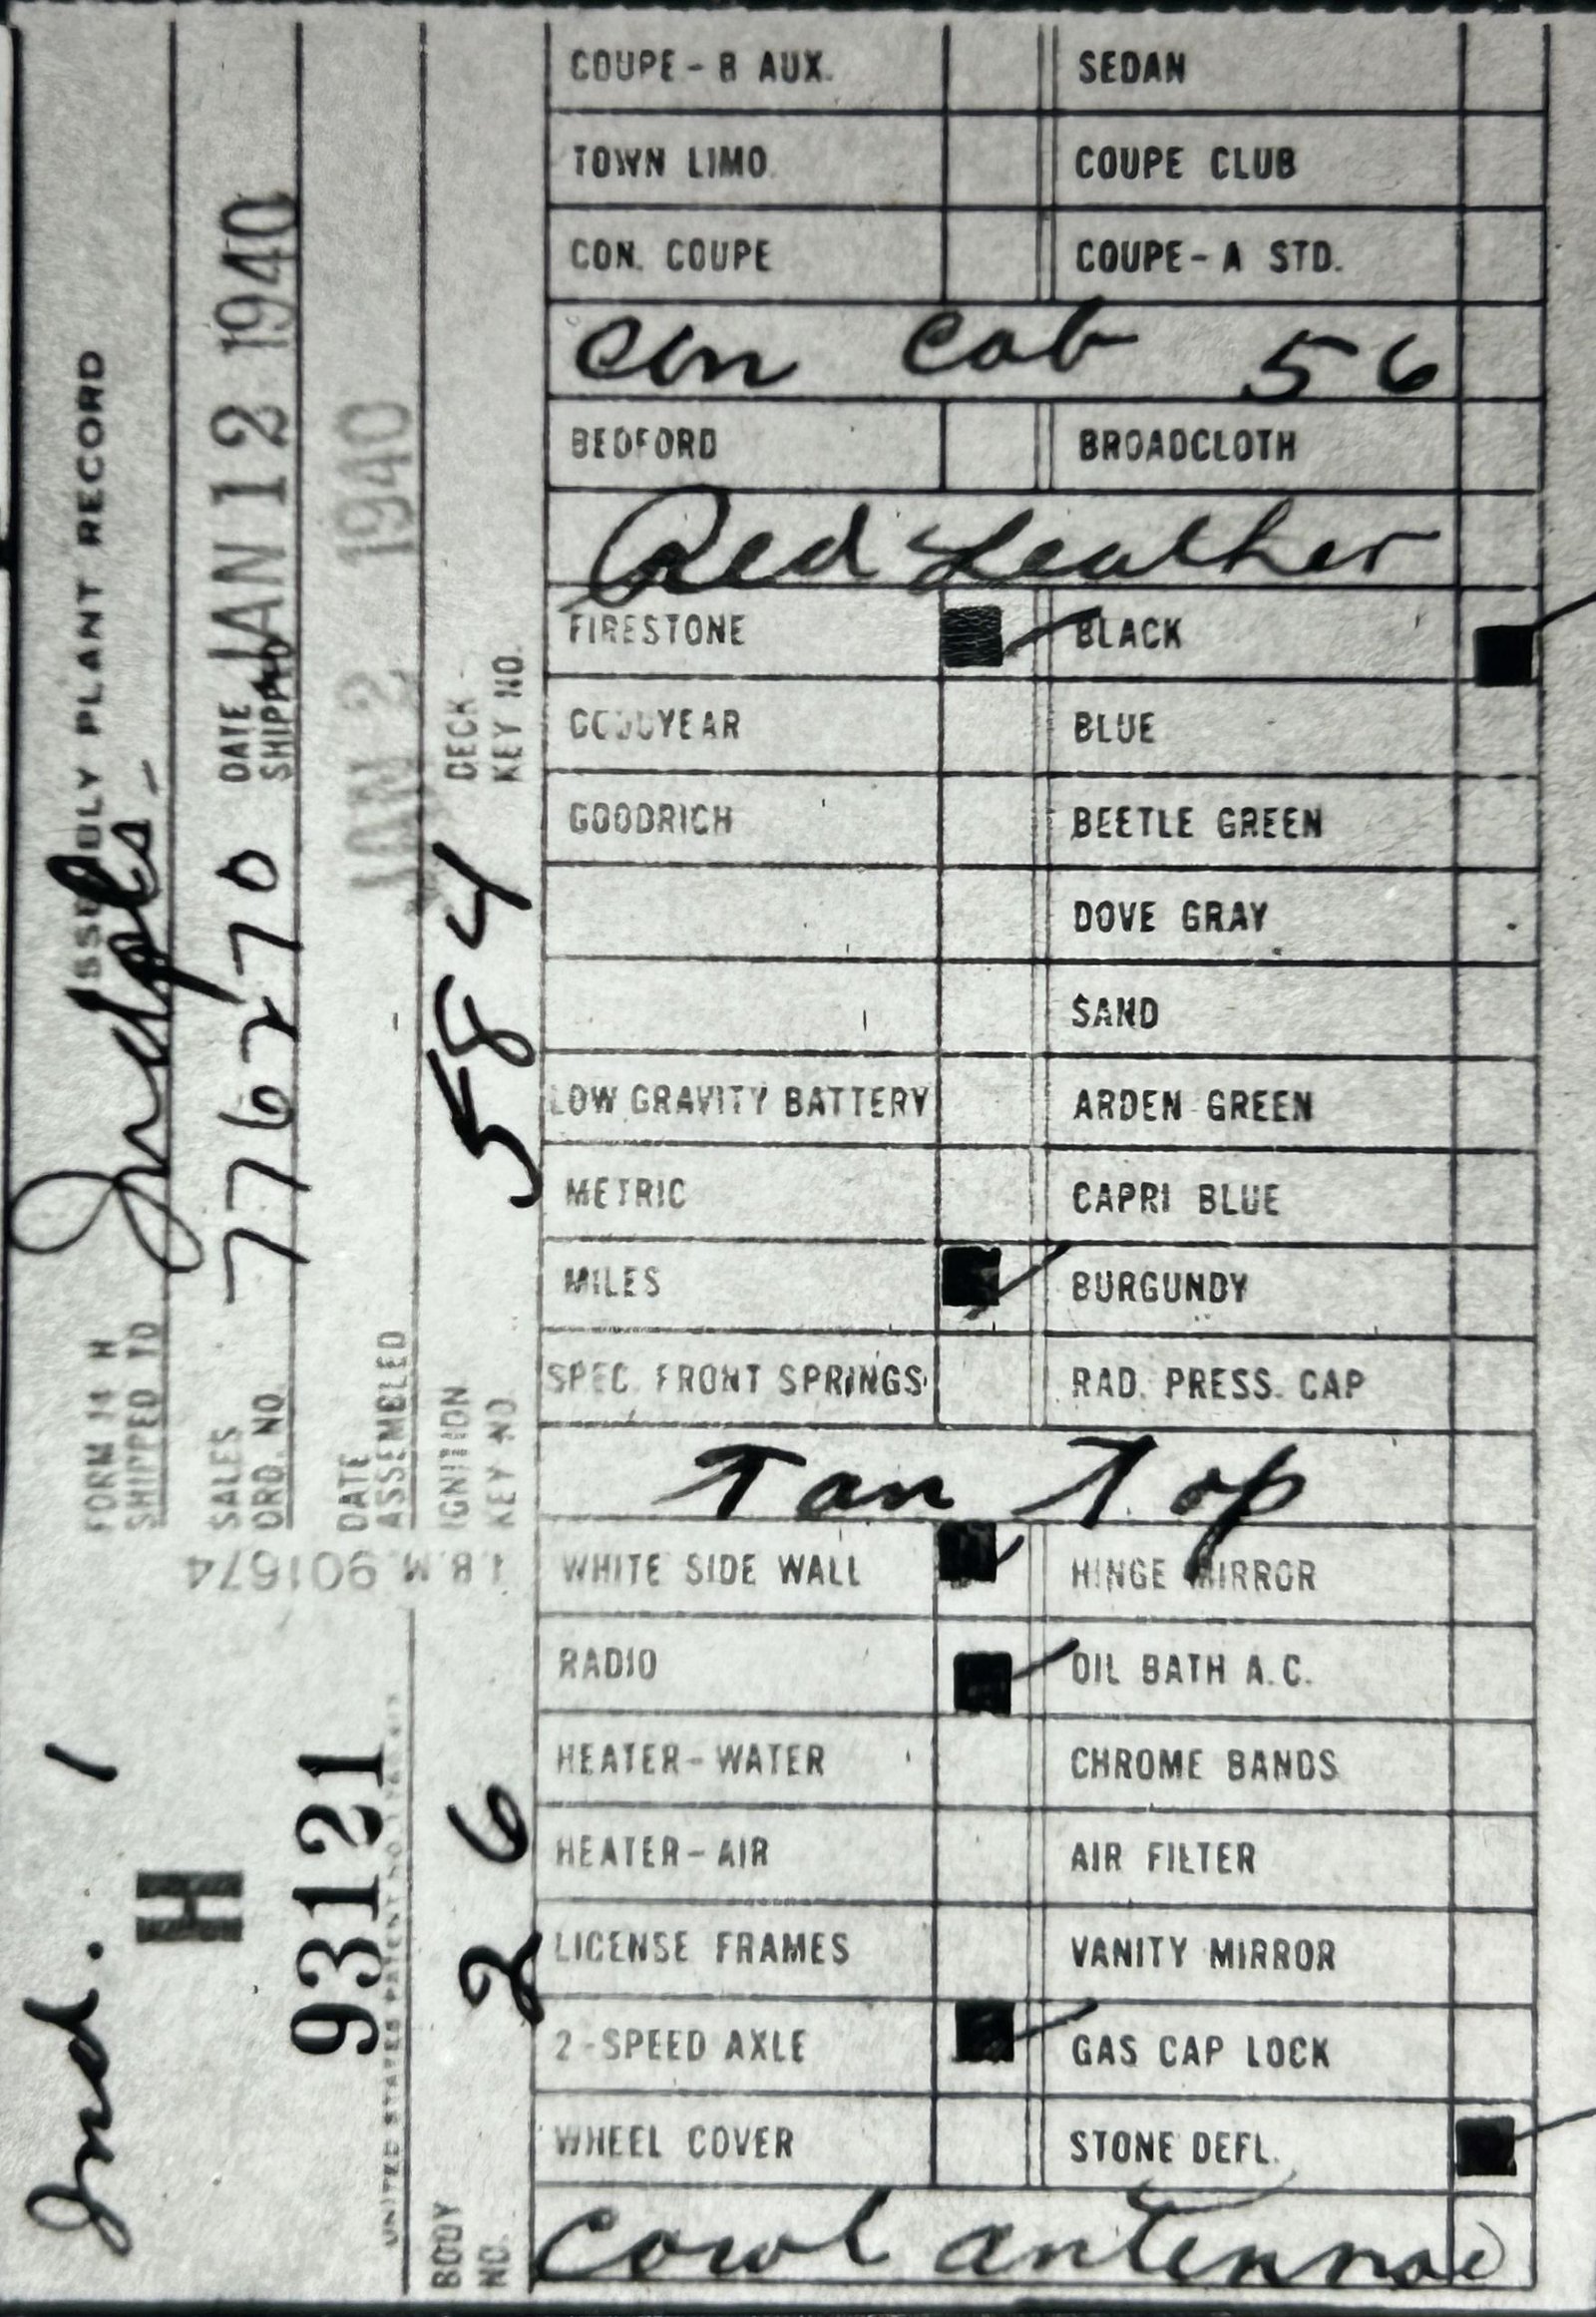 ASSEMBLY PLANT RECORD
FORM 14 H
SHIPPED TO Indpls
SALES ORD. NO. 776270 DATE SHIPPED JAN 12 1940
DATE ASSEMBLED JAN 2 1940
IGNITION KEY NO. 584 DECK KEY NO.
I.B.M. 901674
Ind. 1
H
93121
UNITED STATES PATENT NO.
BODY NO. 26
COUPE-B AUX. SEDAN
TOWN LIMO. COUPE CLUB
CON. COUPE COUPE-A STD.
Con Cab 56
BEDFORD BROADCLOTH
Red Leather
FIRESTONE BLACK
GOODYEAR BLUE
GOODRICH BEETLE GREEN
DOVE GRAY
SAND
LOW GRAVITY BATTERY ARDEN GREEN
METRIC CAPRI BLUE
MILES BURGUNDY
SPEC. FRONT SPRINGS RAD. PRESS. CAP
Tan Top
WHITE SIDE WALL HINGE MIRROR
RADIO OIL BATH A.C.
HEATER-WATER CHROME BANDS
HEATER-AIR AIR FILTER
LICENSE FRAMES VANITY MIRROR
2-SPEED AXLE GAS CAP LOCK
WHEEL COVER STONE DEFL.
Cowl antennae